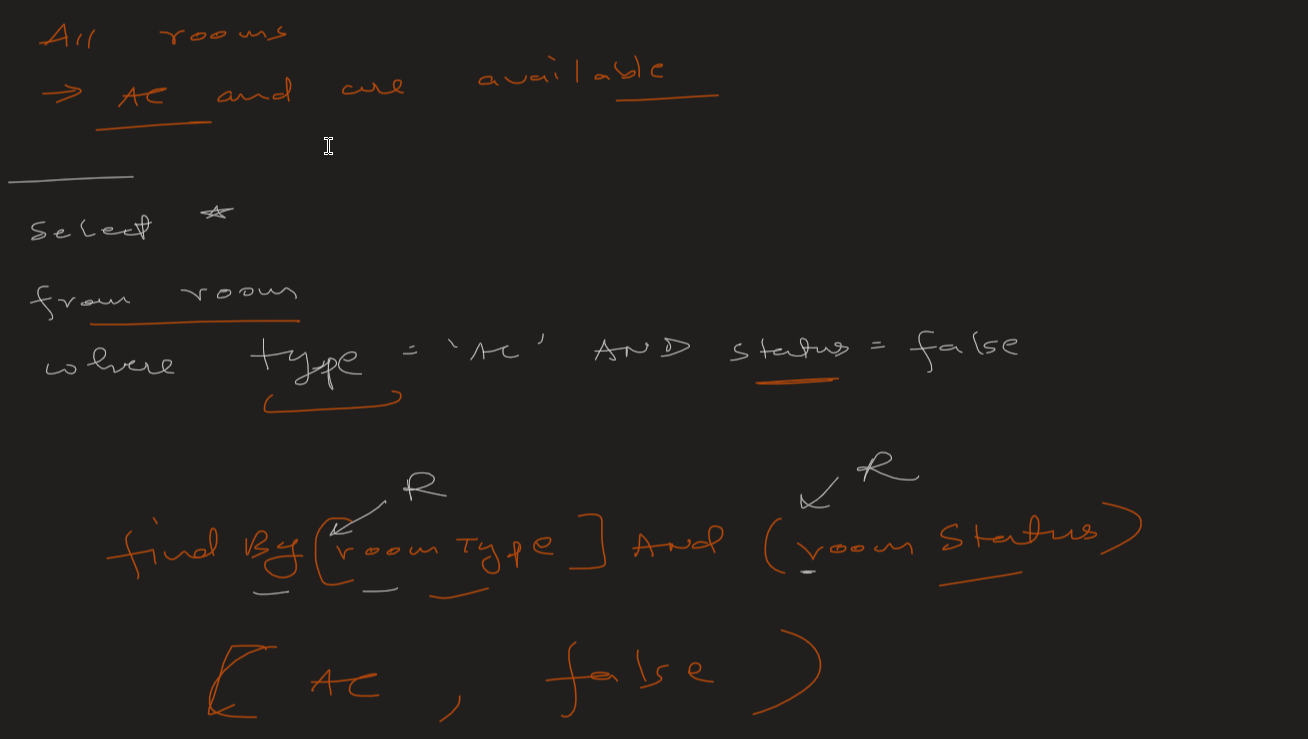 All rooms
→ AC and are available
Select *
from room
where type = 'AC' AND status = false
R R
find By [room Type] And (room Status)
[ AC , false )